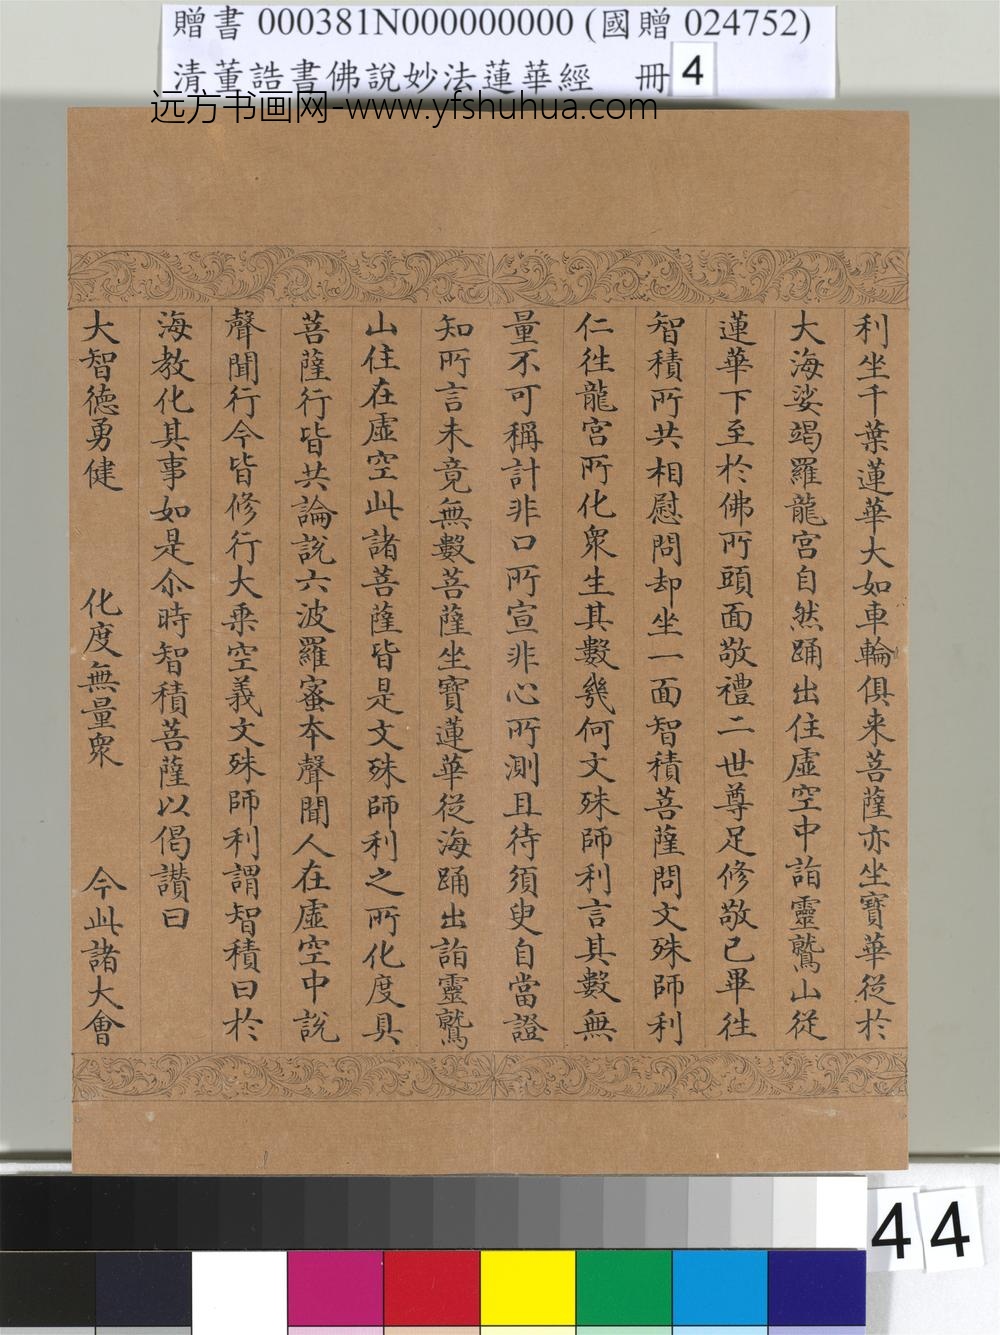 贈書 000381N000000000 (國贈 024752)
清董誥書佛說妙法蓮華經 冊 4
远方书画网-www.yfshuhua.com
利坐千葉蓮華大如車輪俱来菩薩亦坐寶華從於
大海娑竭羅龍宮自然踊出住虛空中詣靈鷲山從
蓮華下至於佛所頭面敬禮二世尊足修敬已畢往
智積所共相慰問却坐一面智積菩薩問文殊師利
仁往龍宮所化衆生其數幾何文殊師利言其數無
量不可稱計非口所宣非心所測且待須臾自當證
知所言未竟無數菩薩坐寶蓮華從海踊出詣靈鷲
山住在虛空此諸菩薩皆是文殊師利之所化度具
菩薩行皆共論說六波羅蜜本聲聞人在虛空中說
聲聞行今皆修行大乘空義文殊師利謂智積曰於
海教化其事如是尒時智積菩薩以偈讃曰
大智德勇健 化度無量衆 今此諸大會
44